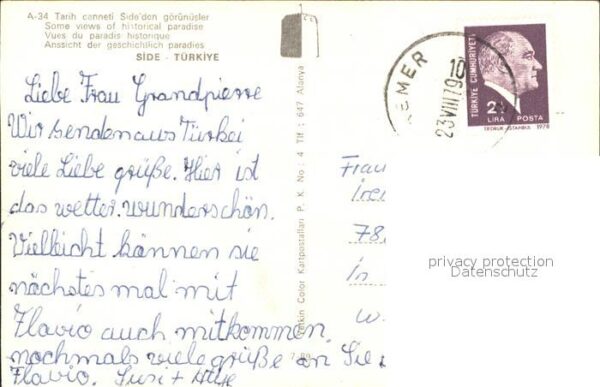 A-34 Tarih cenneti Side'den görünüşler
Some views of historical paradise
Vues du paradis historique
Anssicht der geschichtlich paradies
SİDE - TÜRKİYE
Liebe Frau Grandpierre
Wir senden aus Türkei
viele Liebe grüße. Hier ist
das wetter wunderschön.
Vielleicht kännen sie
nächstes mal mit
Flavio auch mitkommen.
nochmals viele grüße an Sie
Flavio. Susi +
Color Kartpostalları P. K. No: 4 Tlf: 647 Alanya
KEMER
10
23 VIII 79
TÜRKİYE CUMHURİYETİ
2½
LIRA POSTA
1978
Frau
78
in
privacy protection
Datenschutz